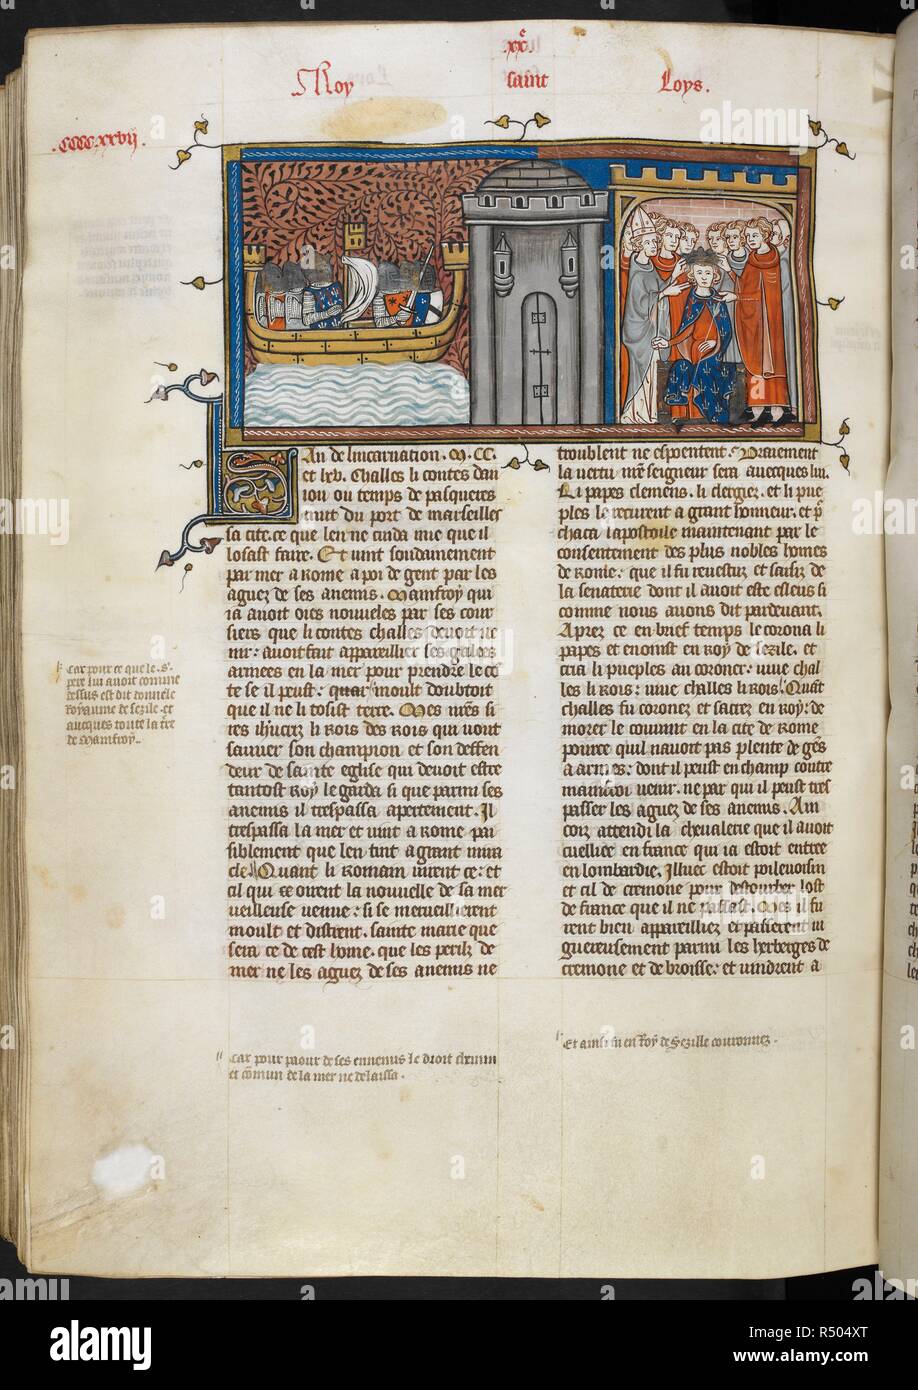 .xx.e
Roy saint Loys.
.CCCC.xxvij.
An de lincarnation .M.CC.
et lxv. Challes li contes dan
iou ou temps de pasqueres
du port de marseilles
sa cite. ce que len ne cuida mie que il
losast faire. Et vint soudainement
par mer a Rome a poi de gent par les
aguez de ses anemis. Mainfroy qui
ia auoit oies nouueles par ses cour
siers que li contes challes deuoit ve
nir: auoit fait appareillier ses galies
armees en la mer pour prendre le co͂
te se il peust: quar moult doubtoit
que il ne li tosist terre. Mes
li Rois des Rois qui vout
sauuer son champion et son deffen
deur de sainte eglise qui deuoit estre
tantost Roy le garda si que parmi ses
anemis il trespassa apertement. Il
trespassa la mer et vint a Rome pai
siblement que len tint a grant mira
cle. Quant li Romain virent ce: et
cil qui oirent la nouuelle de sa mer
ueilleuse venue: si se merueillierent
moult et distrent. sainte marie que
sera ce de cest home. que les periz de
mer ne les aguez de ses anemis ne
troublent ne espoentent. Vraiement
la vertu n͂re seigneur sera auecques lui.
Li papes clemens. li clergiez. et li pue
ples le recurent a grant honneur. et p͂
chaca lapostoile maintenant par le
consentement des plus nobles homes
de Rome: que il fu reuestuz et saisiz de
la senaterie dont il auoit este esleus si
comme nous auons dit pardeuant.
Aprez ce en brief temps le corona li
papes et enoinst en Roy de sezile. et
cria li pueples au coroner: viue chal
les li Rois: viue challes li Rois. Quant
challes fu coronez et sacrez en roy: de
morer le couuint en la cite de Rome
pource quil nauoit pas plente de ge͂s
a armes: dont il peust en champ contre
mainfroi venir. ne par qui il peust tres
passer les aguez de ses anemis. Ain
coiz attendi la cheualerie que il auoit
cueillie en france qui ia estoit entree
en lombardie. Illuec estoit poileuoisin
et cil de cremone pour destourber lost
de france que il ne passast. Mes il fu
rent bien appareilliez et passerent vi
guereusement parmi les herberges de
cremone et de broisse: et vindrent a
car pour ce que le .S.
pere lui auoit comme
dessus est dit donne le
Royaume de sezile. et
auecques toute la t͂re
de Mainfroy..
Car pour paour de ses ennemis le droit chemin
et co͂mun de la mer ne delaissa.
Et ainsi fu en Roy de Sezille couronnez.
alamy
alamy
Image ID: R504XT
www.alamy.com